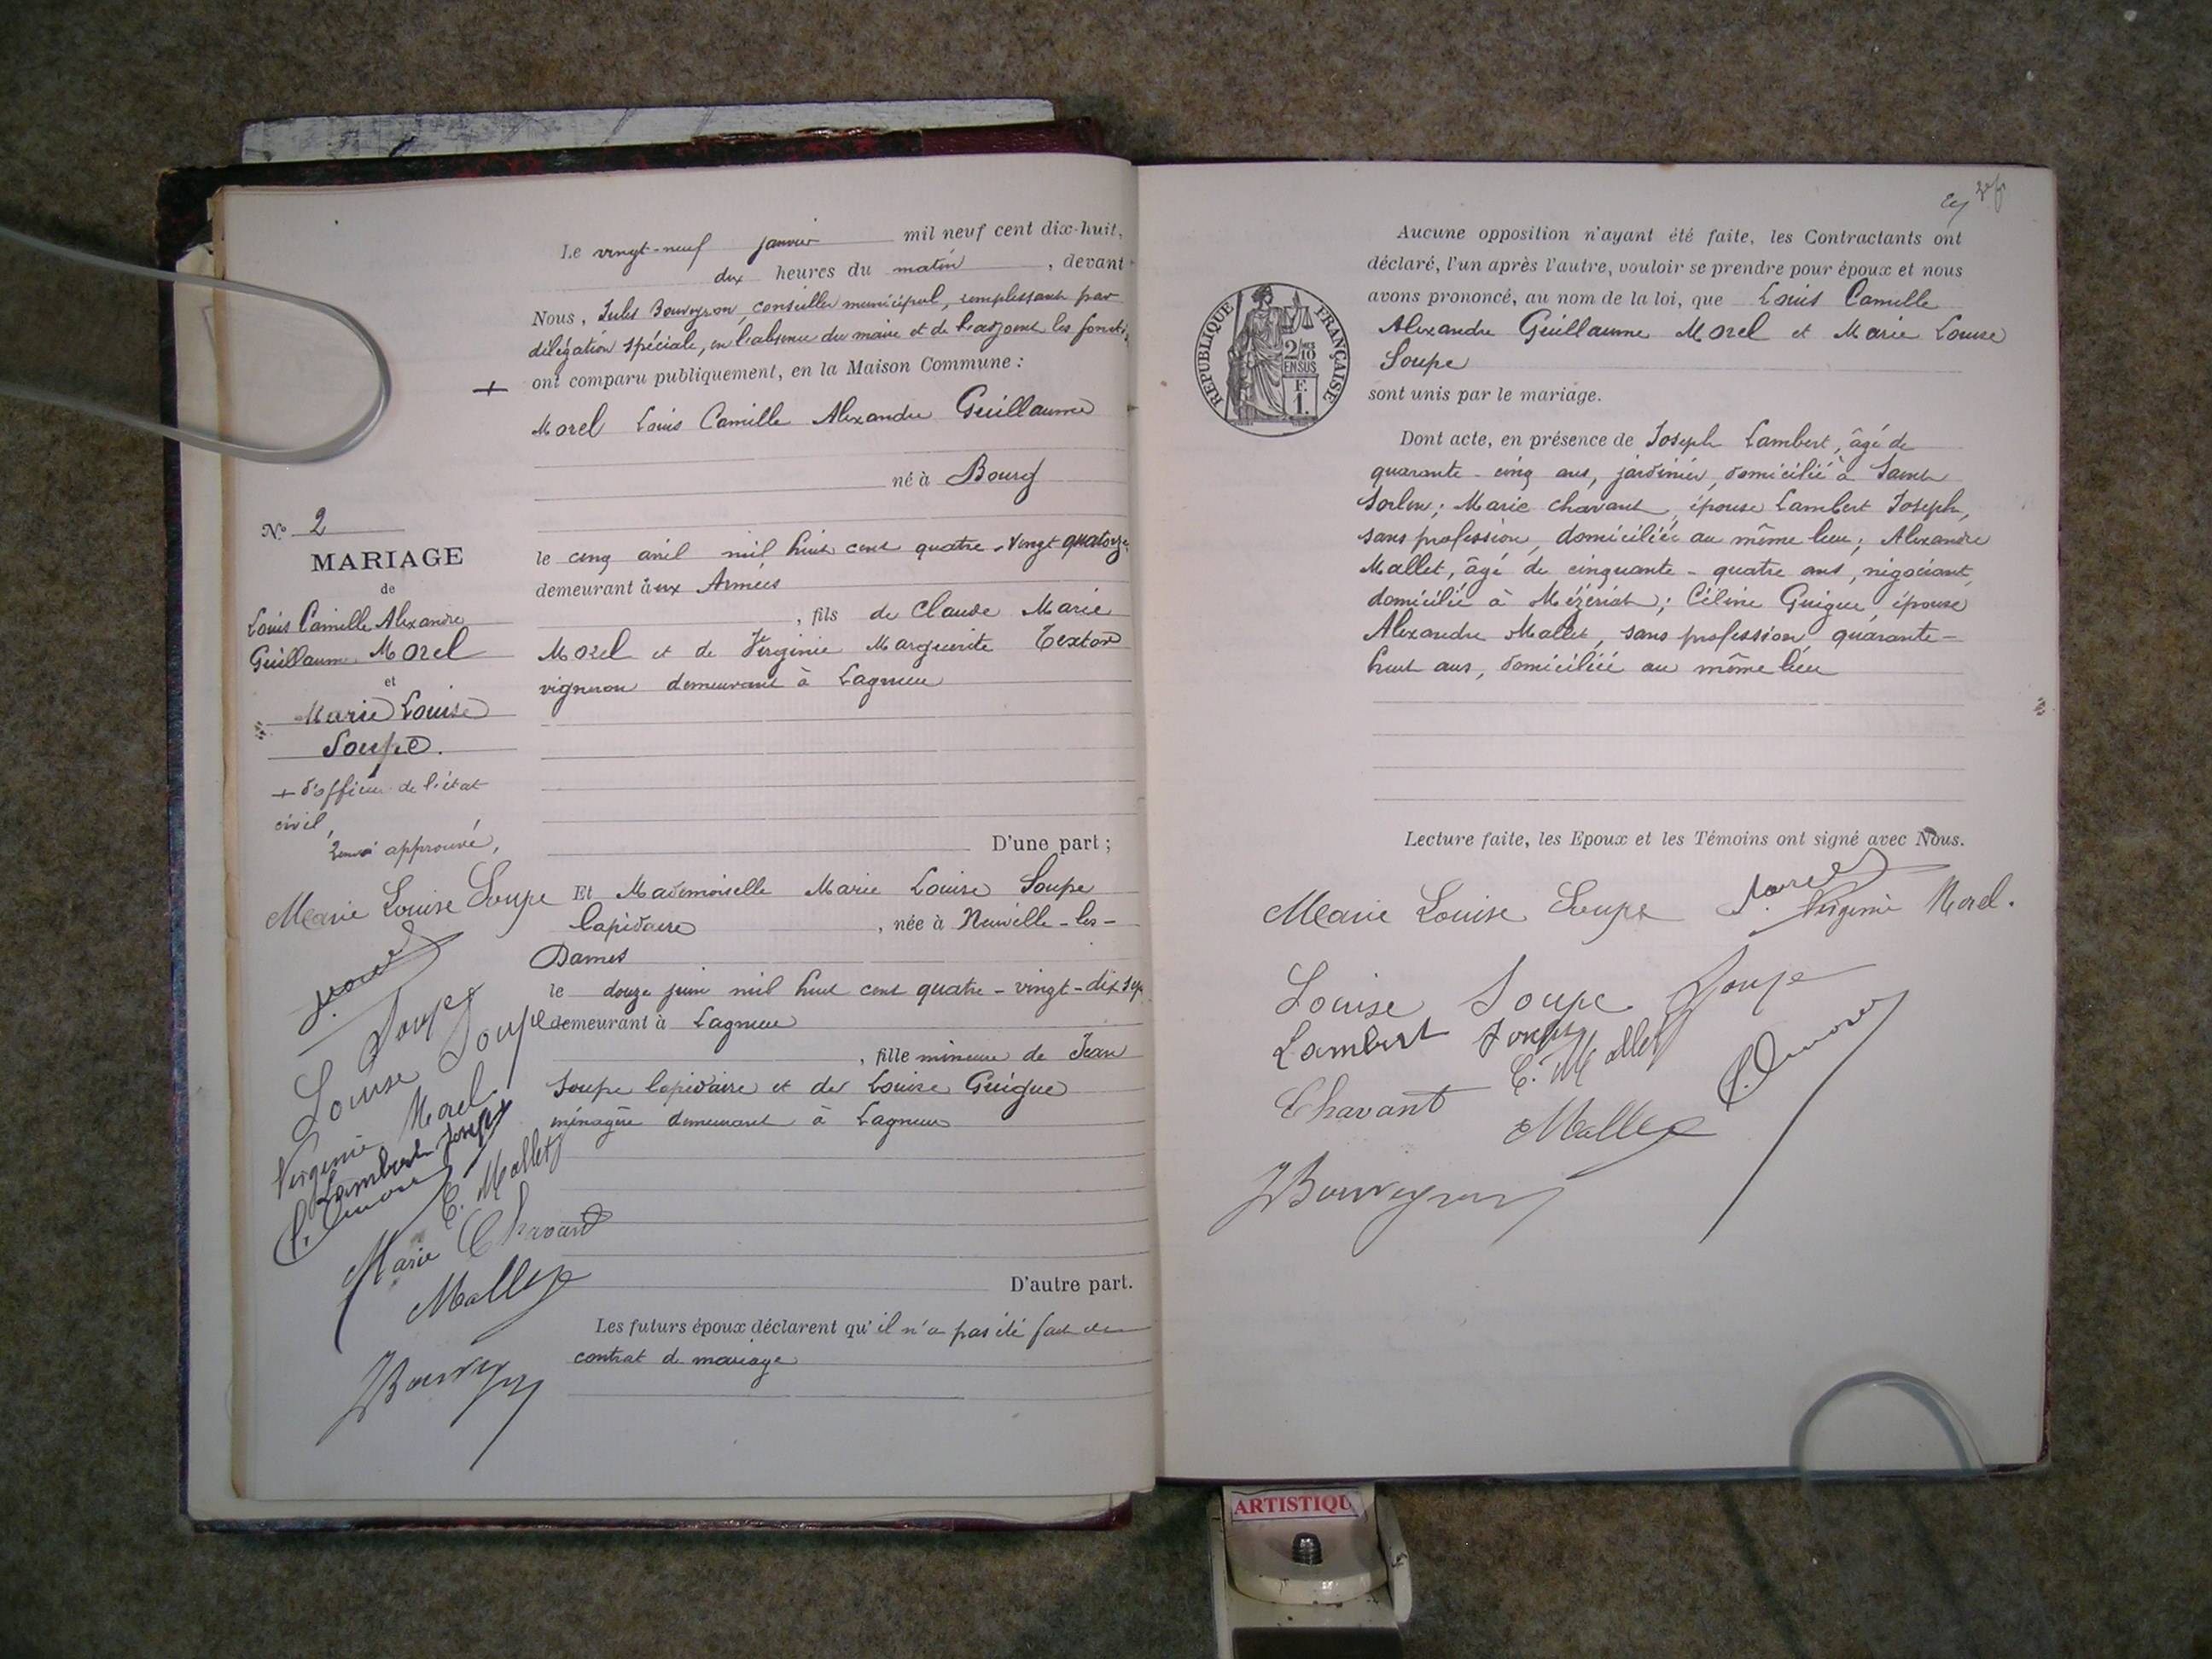 Le vingt-neuf janvier mil neuf cent dix-huit,
dix heures du matin, devant
Nous, Jules Bouveyron, conseiller municipal, remplissant par
délégation spéciale, en l'absence du maire et de l'adjoint les foncti
+ ont comparu publiquement, en la Maison Commune :
Morel Louis Camille Alexandre Guillaume
né à Bourg
le cinq avril mil huit cent quatre-vingt quatorze
demeurant aux Armées
, fils de Claude Marie
Morel et de Virginie Marguerite Texton
vigneron demeurant à Lagnieu
D'une part ;
Et Mademoiselle Marie Louise Soupe
lapidaire, née à Neuville-les-
Dames
le douze juin mil huit cent quatre-vingt-dix sep
demeurant à Lagnieu
, fille mineure de Jean
Soupe lapidaire et de Louise Guigue
ménagère demeurant à Lagnieu
D'autre part.
Les futurs époux déclarent qu'il n'a pas été fait de
contrat de mariage
N° 2
MARIAGE
de
Louis Camille Alexandre
Guillaume Morel
et
Marie Louise
Soupe.
+ d'officier de l'état
civil,
Renvoi approuvé,
Marie Louise Soupe
Morel
Soupe
Louise Soupe
Virginie Morel
Lambert Joseph
C. Mallet
Marie Chavant
Mallet
JBouveyron
Aucune opposition n'ayant été faite, les Contractants ont
déclaré, l'un après l'autre, vouloir se prendre pour époux et nous
avons prononcé, au nom de la loi, que Louis Camille
Alexandre Guillaume Morel et Marie Louise
Soupe
sont unis par le mariage.
RÉPUBLIQUE FRANÇAISE
2/10
EN SUS
F.
1.
Dont acte, en présence de Joseph Lambert, âgé de
quarante-cinq ans, jardinier, domicilié à Saint
Sorlin; Marie Chavant, épouse Lambert Joseph,
sans profession, domiciliée au même lieu; Alexandre
Mallet, âgé de cinquante-quatre ans, négociant,
domicilié à Mézériat; Céline Guigue épouse
Alexandre Mallet, sans profession, quarante-
huit ans, domiciliée au même lieu
Lecture faite, les Epoux et les Témoins ont signé avec Nous.
Marie Louise Soupe Morel Virginie Morel.
Louise Soupe Soupe
Lambert Joseph C. Mallet
Chavant
Mallet
JBouveyron
ARTISTIQU